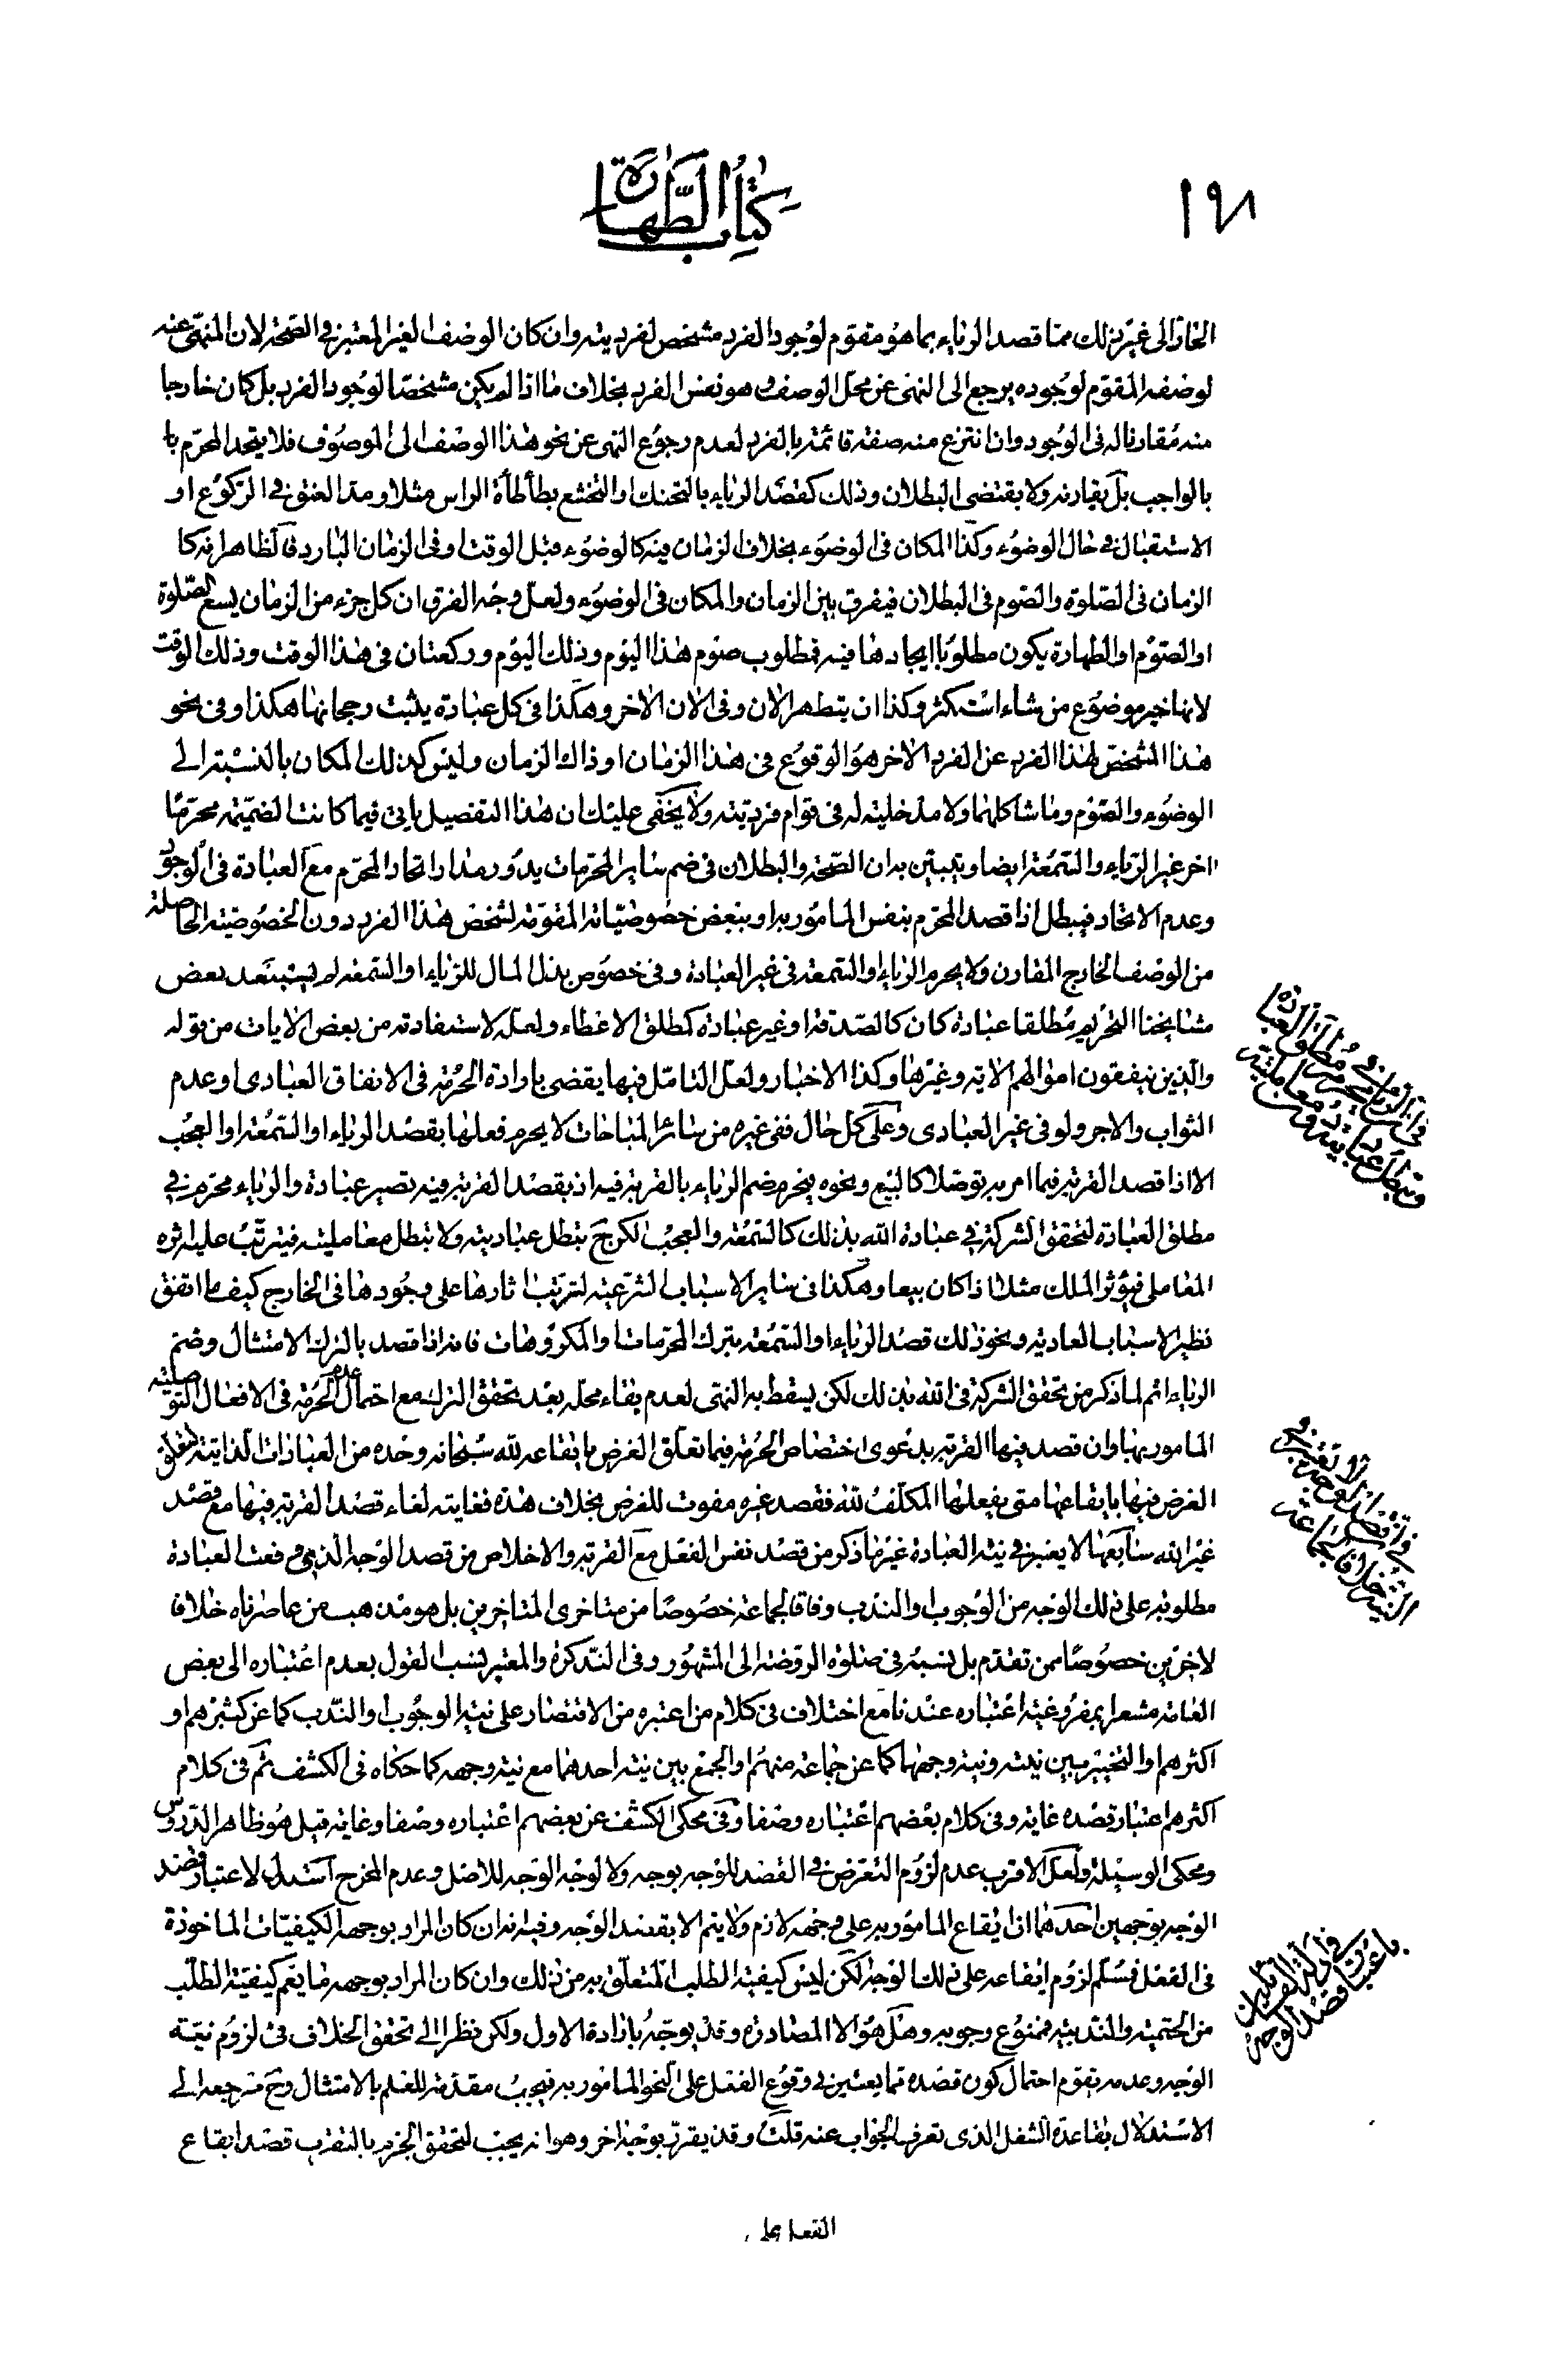 ١٩٨
كتاب الطهارة
الحارّ الى غير ذلك ممّا قصد الرياء بما هو مقوّم لوجود الفرد مشخص لفرديته وان كان الوصف الغير المعتبر في الصّحة لان النهى عنه
لوصفه المقوّم لوجوده يرجع الى النهى عن محلّ الوصف وهو نفس الفرد بخلاف ما اذا لم يكن مشخّصا لوجود الفرد بل كان خارجا
منه مقارنا له فى الوجود وان انتزع منه صفة قائمة بالفرد لعدم رجوع النهى عن نحو هذا الوصف الى الموصوف فلا يتحد المحرّم با
بالواجب بل يقارنه ولا يقتضى البطلان وذلك كقصد الرياء بالتحنك او التخشع بطأطأة الراس مثلا ومدّ العنق في الركوع او
الاستقبال في حال الوضوء وكذا المكان فى الوضوء بخلاف الزمان فيه كالوضوء قبل الوقت او فى الزمان البارد فالظاهر انه كا
الزمان فى الصّلوة والصّوم فى البطلان فيفرق بين الزمان والمكان فى الوضوء ولعلّ وجه الفرق ان كل جزء من الزمان يسع الصّلوة
او الصّوم او الطهارة يكون مطلوبا ايجادها فيه فمطلوب صوم هذا اليوم وذلك اليوم وركعتان فى هذا الوقت وذلك الوقت
لانها خير موضوع من شاء استكثر وكذا ان يتطهر الان وفى الان الاخر وهكذا فى كل عبادة يثبت رجحانها هكذا وفى نحو
هذا المشخص لهذا الفرد عن الفرد الاخر هو الوقوع فى هذا الزمان او ذاك الزمان وليس كذلك المكان بالنسبة الى
الوضوء والصّوم وما شاكلهما ولا مدخلية له فى قوام فرديّته ولا يخفى عليك ان هذا التفصيل ياتى فيما كانت الضميمة محرّمًا
اخر غير الرياء والسّمعة ايضا ويتبيّن به ان الصّحة والبطلان فى ضم ساير المحرّمات يدور مدار اتحاد المحرّم مع العبادة فى الوجود
وعدم الاتحاد فيبطل اذا قصد المحرّم بنفس المامور به او ببعض خصوصيّاته المقوّمة لشخص هذا الفرد دون الخصوصيّة الحاصلة
من الوصف الخارج المقارن ولا يحرم الرياء او السّمعة فى غير العبادة وفى خصوص بذل المال للرياء او السّمعة لم يستبعد بعض
مشايخنا التحريم مطلقا عبادة كان كالصّدقة او غير عبادة كمطلق الاعطاء ولعلّه لاستفادته من بعض الايات من قوله
والذين ينفقون اموالهم الاية وغيرها وكذا الاخبار ولعلّ التامّل فيها يقضى بارادة الحرمة فى الانفاق العبادى او عدم
الثواب والاجر ولو فى غير العبادى وعلى كل حال ففى غيره من سائر المباحات لا يحرم فعلها بقصد الرياء او السّمعة او العجب
الا اذا قصد القربة فيما امر به توصّلا كالبيع ونحوه فيحرم ضم الرياء بالقربة فيه اذ بقصد القربة فيه تصير عبادة والرياء محرّم في
مطلق العبادة لتحقق الشركة في عبادة الله بذلك كالسّمعة والعجب لكن ح تبطل عباديته ولا تبطل معامليته فيترتّب عليه اثره
المعاملى فيؤثر الملك مثلا اذا كان بيعا وهكذا فى ساير الاسباب الشرعيّة لترتّب اثارها على وجودها فى الخارج كيف ما اتفق
نظير الاسباب العادية ونحو ذلك قصد الرياء او السّمعة بترك المحرّمات او المكروهات فانه اذا قصد بالترك الامتثال وضم
الرياء اثم لما ذكر من تحقق الشركة فى الله بذلك لكن يسقط به النهى لعدم بقاء محلّه بعد تحقق الترك مع احتمال عدم الحرمة فى الافعال التوصلية
المامور بها وان قصد فيها القربة بدعوى اختصاص الحرمة فيما تعلّق الغرض بايقاعه لله سبحانه وحده من العبادات الذاتية لتعلق
الغرض فيها بايقاعها متى يفعلها المكلّف لله فقصد غيره مفوت للغرض بخلاف هذه فغايته لغاء قصد القربة فيها مع قصد
غير الله سابعها لا يعتبر في نية العبادة غير ما ذكر من قصد نفس الفعل مع القربة والاخلاص من قصد الوجه الذى وقعت العبادة
مطلوبة على ذلك الوجه من الوجوب او الندب وفاقا لجماعة خصوصًا من متاخرى المتاخرين بل هو مذهب من عاصرناه خلافا
لاخرين خصوصًا ممن تقدّم بل نسبه فى صلوة الروضة الى المشهور وفى التذكرة والمعتبر نسب القول بعدم اعتباره الى بعض
العامة مشعرا بمفروغية اعتباره عندنا مع اختلاف فى كلام من اعتبره من الاقتصار على نية الوجوب او الندب كما عن كثير هم او
اكثرهم او التخيير بين نيته ونية وجههما كما عن جماعة منهم او الجمع بين نية احدهما مع نية وجهه كما حكاه فى الكشف ثم فى كلام
اكثرهم اعتبار قصده غاية وفى كلام بعضهم اعتباره وصفا وفى محكى الكشف عن بعضهم اعتباره وصفا وغاية قيل هو ظاهر الدروس
ومحكى الوسيلة ولعل الاقرب عدم لزوم التعرّض في القصد للوجه بوجه ولا لوجه الوجه للاصل وعدم المخرج استدل لاعتبار قصد
الوجه بوجهين احدهما ان ايقاع المامور به على وجهه لازم ولا يتم الا بقصد الوجه وفيه انه ان كان المراد بوجهه الكيفيّات الماخوذة
فى الفعل فمسّلم لزوم ايقاعه على ذلك الوجه لكن ليس كيفية الطلب المتعلّق به من ذلك وان كان المراد بوجهه ما يعمّ كيفيّة الطلب
من الحتمية والندبية فممنوع وجوبه وهل هو الا المصادرة وقد يوجّه بارادة الاول ولكن نظرا الى تحقق الخلاف فى لزوم نيّة
الوجه وعدمه يقوم احتمال كون قصده مما يعتبر فى وقوع الفعل على النحو المامور به فيجب مقدمة للعلم بالامتثال وح مرجعه الى
الاستدلال بقاعدة الشغل الذى تعرف الجواب عنه قلت وقد يقرّر بوجه اخر وهو انه يجب لتحقق الجزم بالتقرّب قصد ايقاع
الفعل على